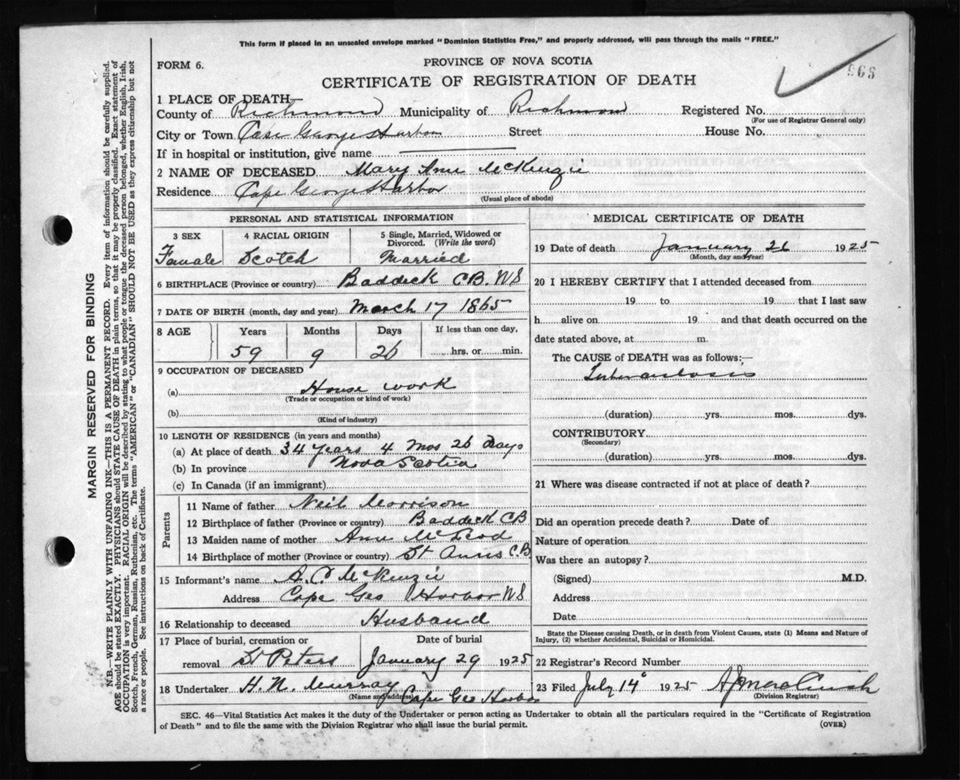 This form if placed in an unsealed envelope marked "Dominion Statistics Free," and properly addressed, will pass through the mails "FREE."
FORM 6.
PROVINCE OF NOVA SCOTIA
965
CERTIFICATE OF REGISTRATION OF DEATH
1 PLACE OF DEATH
County of Richmond Municipality of Richmond Registered No.
(For use of Registrar General only)
City or Town Cape George Harbor Street House No.
If in hospital or institution, give name
2 NAME OF DECEASED Mary Ann McKenzie
Residence Cape George Harbor
(Usual place of abode)
PERSONAL AND STATISTICAL INFORMATION
3 SEX 4 RACIAL ORIGIN 5 Single, Married, Widowed or Divorced. (Write the word)
Female Scotch Married
6 BIRTHPLACE (Province or country) Baddeck CB. NS
7 DATE OF BIRTH (month, day and year) March 17 1865
8 AGE Years Months Days If less than one day,
59 9 26 hrs. or min.
9 OCCUPATION OF DECEASED
(a) House work
(Trade or occupation or kind of work)
(b)
(Kind of industry)
10 LENGTH OF RESIDENCE (in years and months)
(a) At place of death 34 years 4 mos 26 days
(b) In province Nova Scotia
(c) In Canada (if an immigrant)
Parents
11 Name of father Neil Morrison
12 Birthplace of father (Province or country) Baddeck CB
13 Maiden name of mother Ann McLeod
14 Birthplace of mother (Province or country) St Anns CB
15 Informant's name McKenzie
Address Cape Geo Harbor NS
16 Relationship to deceased Husband
17 Place of burial, cremation or Date of burial
removal St Peters January 29 1925
18 Undertaker H. N. Murray Cape Geo Harbor
(Name and address)
MEDICAL CERTIFICATE OF DEATH
19 Date of death January 26 1925
(Month, day and year)
20 I HEREBY CERTIFY that I attended deceased from
19 to 19 that I last saw
h alive on 19 and that death occurred on the
date stated above, at m.
The CAUSE OF DEATH was as follows:—
Tuberculosis
(duration) yrs. mos. dys.
CONTRIBUTORY
(Secondary)
(duration) yrs. mos. dys.
21 Where was disease contracted if not at place of death?
Did an operation precede death? Date of
Nature of operation
Was there an autopsy?
(Signed) M.D.
Address
Date
State the Disease causing Death, or in death from Violent Causes, state (1) Means and Nature of
Injury, (2) whether Accidental, Suicidal or Homicidal.
22 Registrar's Record Number
23 Filed July 14 1925
(Division Registrar)
SEC. 46—Vital Statistics Act makes it the duty of the Undertaker or person acting as Undertaker to obtain all the particulars required in the "Certificate of Registration
of Death" and to file the same with the Division Registrar who shall issue the burial permit. (OVER)
MARGIN RESERVED FOR BINDING
N.B.—WRITE PLAINLY WITH UNFADING INK—THIS IS A PERMANENT RECORD. Every item of information should be carefully supplied.
AGE should be stated EXACTLY. PHYSICIANS should STATE CAUSE OF DEATH in plain terms, so that it may be properly classified. Exact statement of
OCCUPATION is very important. RACIAL ORIGIN will be described by stating to what people or tongue the deceased person belonged, whether English, Irish,
Scotch, French, German, Russian, Ruthenian, etc. The terms "AMERICAN" or "CANADIAN" SHOULD NOT BE USED as they express citizenship but not
a race or people. See instructions on back of Certificate.